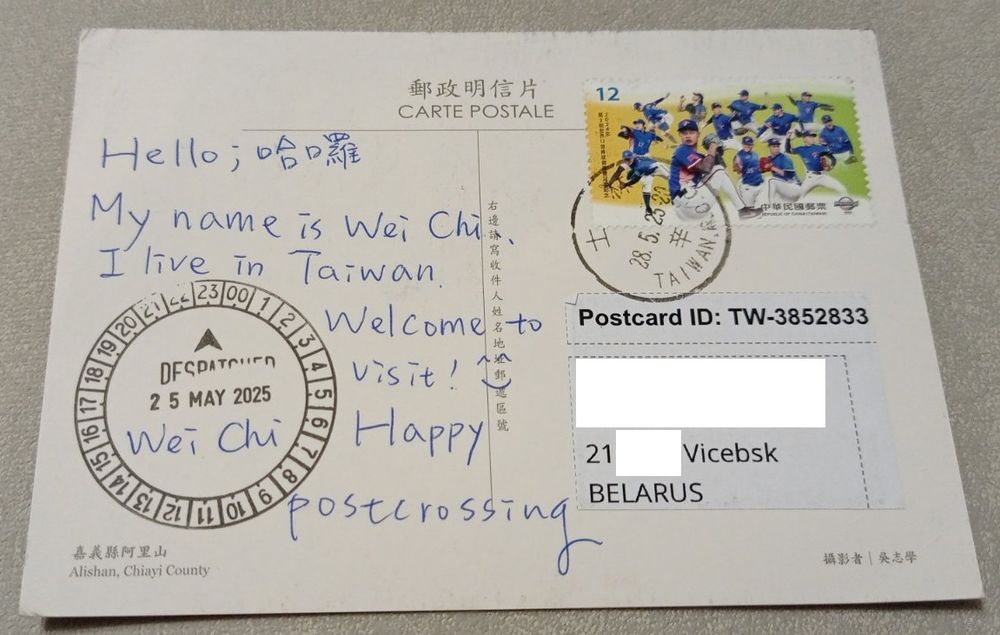 郵政明信片
CARTE POSTALE
12
中華民國郵票
REPUBLIC OF CHINA (TAIWAN)
28.5.25-20
TAIWAN, R.O.C.
Hello; 哈囉
My name is Wei Chi.
I live in Taiwan.
Welcome to
visit! ^^
Happy
postcrossing
右邊請寫收件人姓名地址郵遞區號
Postcard ID: TW-3852833
21 Vicebsk
BELARUS
00 1 2 3 4 5 6 7 8 9 10 11 12 13 14 15 16 17 18 19 20 21 22 23
DESPATCHED
25 MAY 2025
Wei Chi
嘉義縣阿里山
Alishan, Chiayi County
攝影者｜吳志學